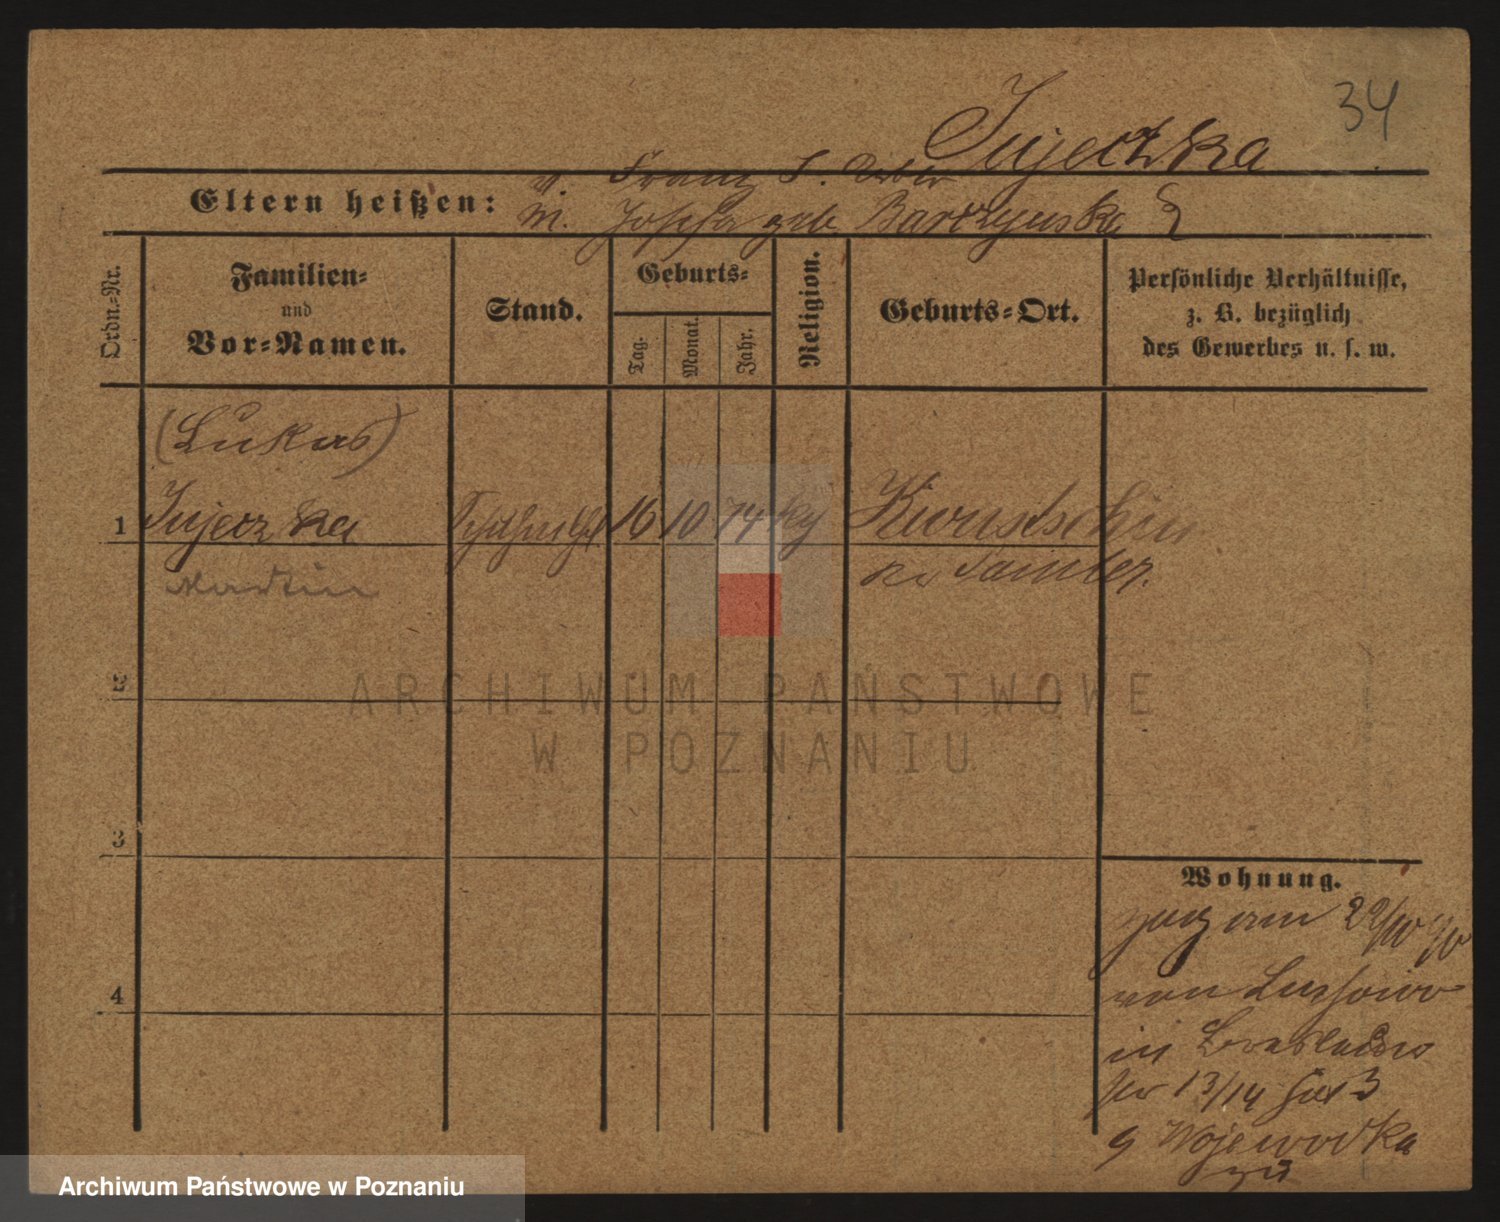 34
Jujeczka
Eltern heißen:
v. Franz J.
M. Josefa geb. Bartzynska
Ordn.-Nr.
Familien-
und
Vor-Namen.
Stand.
Geburts-
Tag.
Monat.
Jahr.
Religion.
Geburts-Ort.
Persönliche Verhältnisse,
z. B. bezüglich
des Gewerbes u. s. w.
(Lukas)
1 Jujeczka 16 10 74 kg
Martin
Kr Samter.
2
ARCHIWUM PAŃSTWOWE
W POZNANIU
3
Wohnung.
zog am 22/10 90
von
4
in
13/14 3
Wojewodka
zu
Archiwum Państwowe w Poznaniu